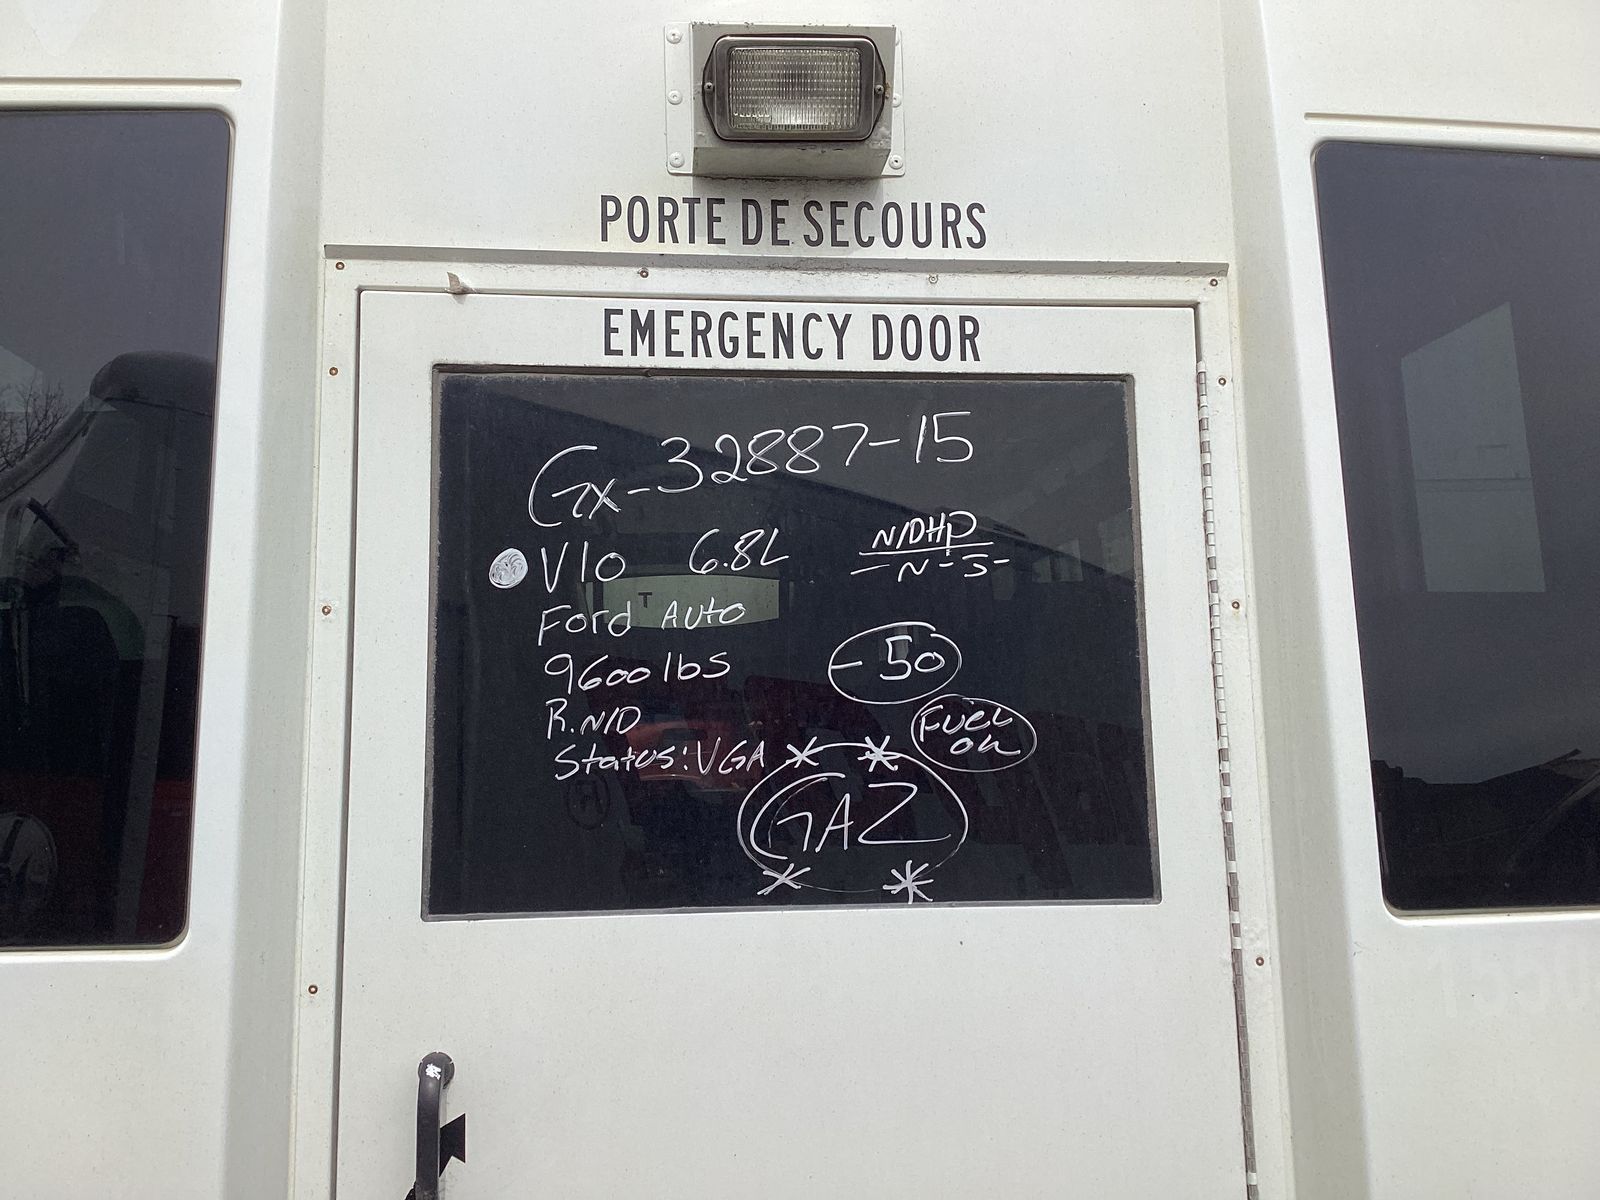 PORTE DE SECOURS
EMERGENCY DOOR
Gx-32887-15
V10 6.8L N/DHP
-N-S-
Ford Auto
T
9600 lbs
- 50
R.N/D
Fuel
ok
Status: VGA
GAZ